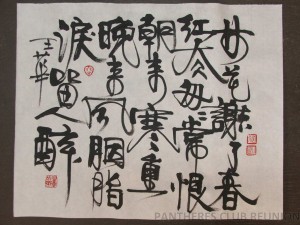 林花謝了春
红太匆常恨
朝来寒重
晚来风胭脂
淚留人醉
王華
PANTHERES CLUB REUNION